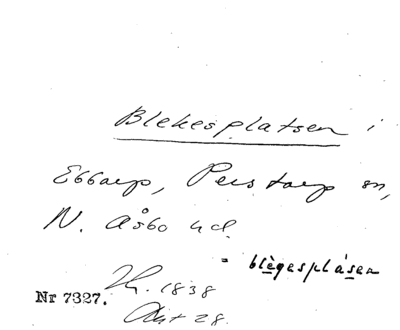 Blekesplatsen i
Ebbarp, Perstorp sn,
N. Åsbo hd.
= blègesplásen
Nr 7327.
1838
Akt 28